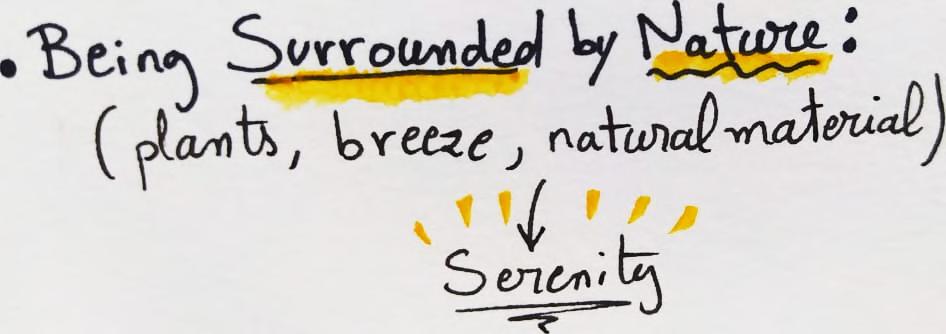 • Being Surrounded by Nature:
(plants, breeze, natural material)
Serenity